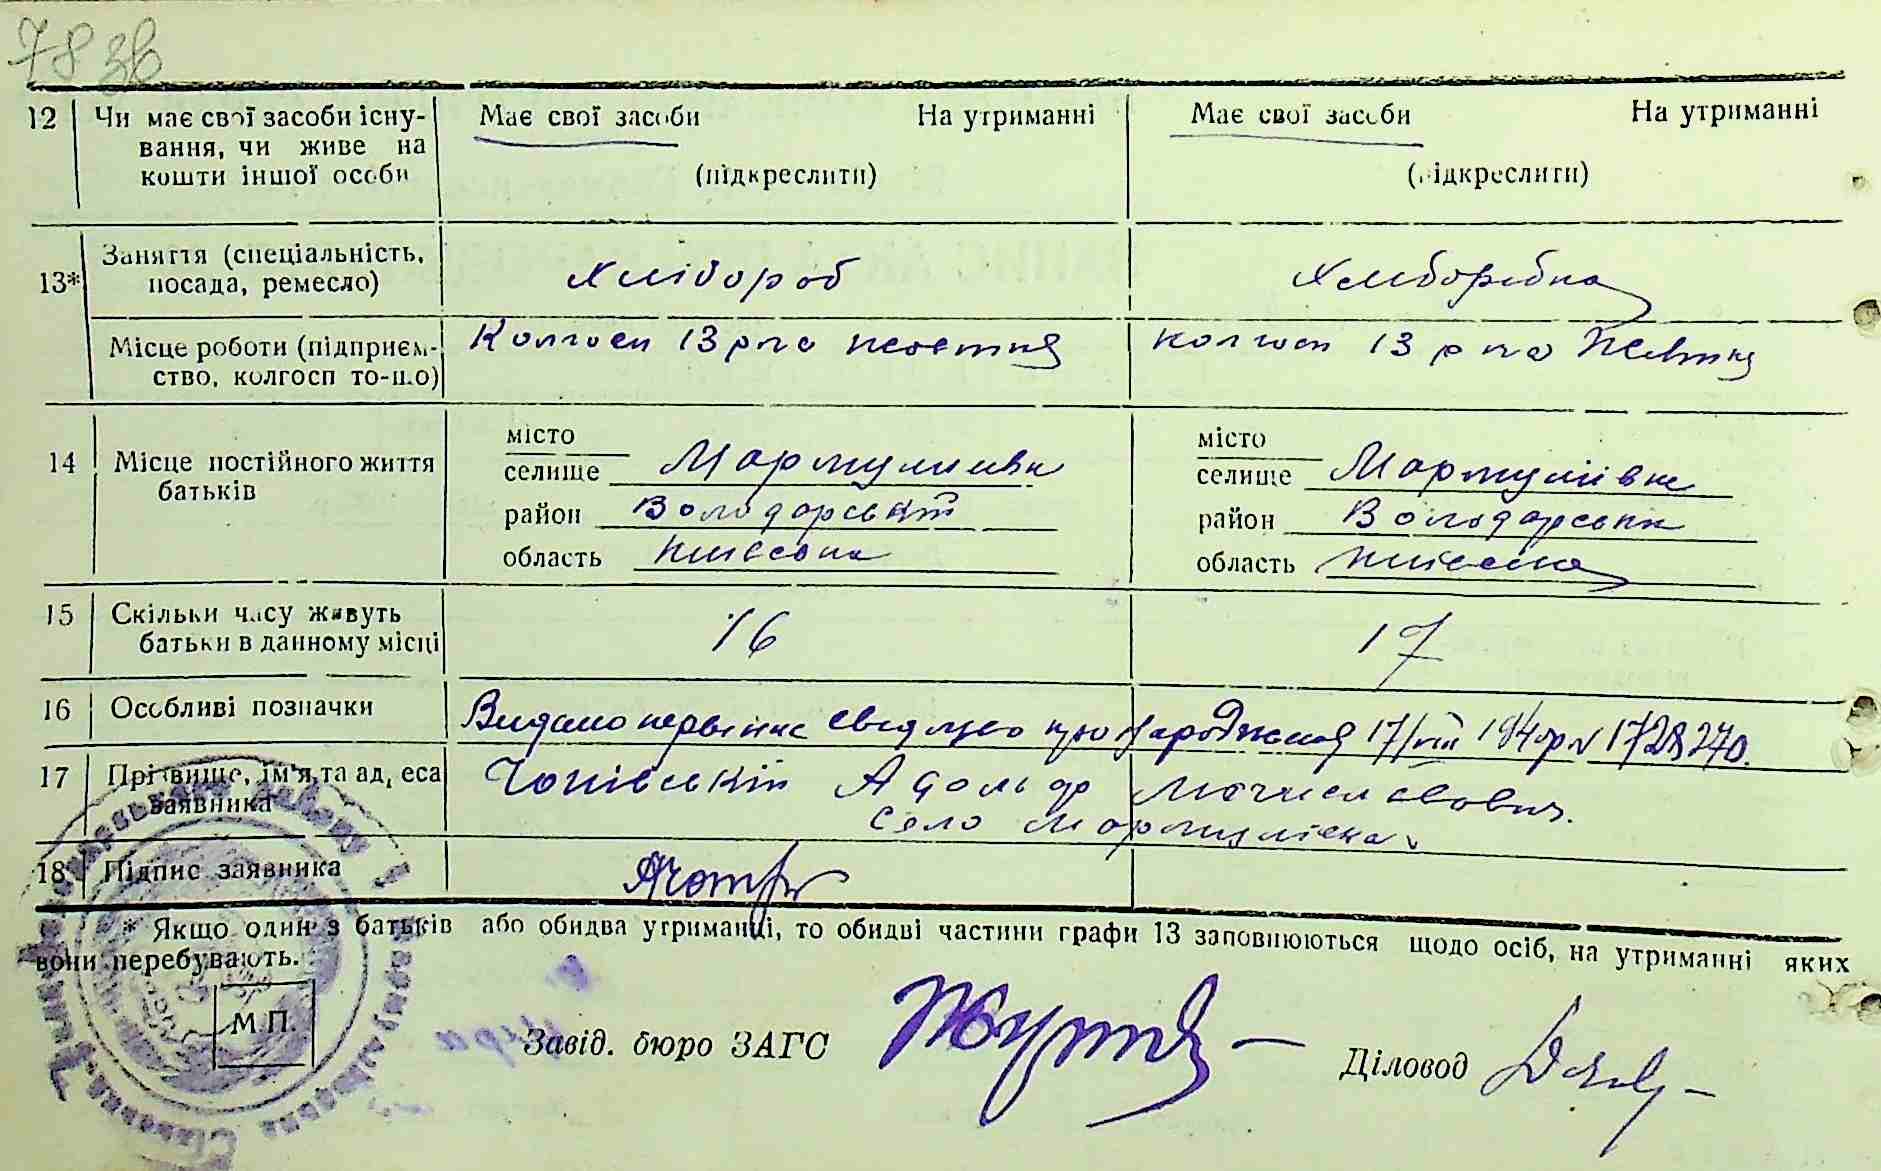 78 зв
12 Чи має свої засоби існу- Має свої засоби На утриманні Має свої засоби На утриманні
вання, чи живе на
кошти іншої особи (підкреслити) (підкреслити)
13* Заняття (спеціальність, посада, ремесло) Хлібороб Хлібороб
Місце роботи (підприєм- Колгосп 13 річчя жовтня колгосп 13 річчя Жовтня
ство, колгосп то-що)
14 Місце постійного життя батьків
місто місто
селище Мармуліївка селище Мармуліївка
район Володарський район Володарськ
область Київська область Київська
15 Скільки часу живуть 16 17
батьки в данному місці
16 Особливі позначки Видано первинне свідоцтво про народження 17/VII 194 р № 1728270.
17 Прізвище, ім'я та адреса Чопівський Адольф Мечиславович.
заявника Село Мармуліївка
18 Підпис заявника
* Якщо один з батьків або обидва утриманці, то обидві частини графи 13 заповнюються щодо осіб, на утриманні яких
вони перебувають.
М.П.
Завід. бюро ЗАГС Діловод